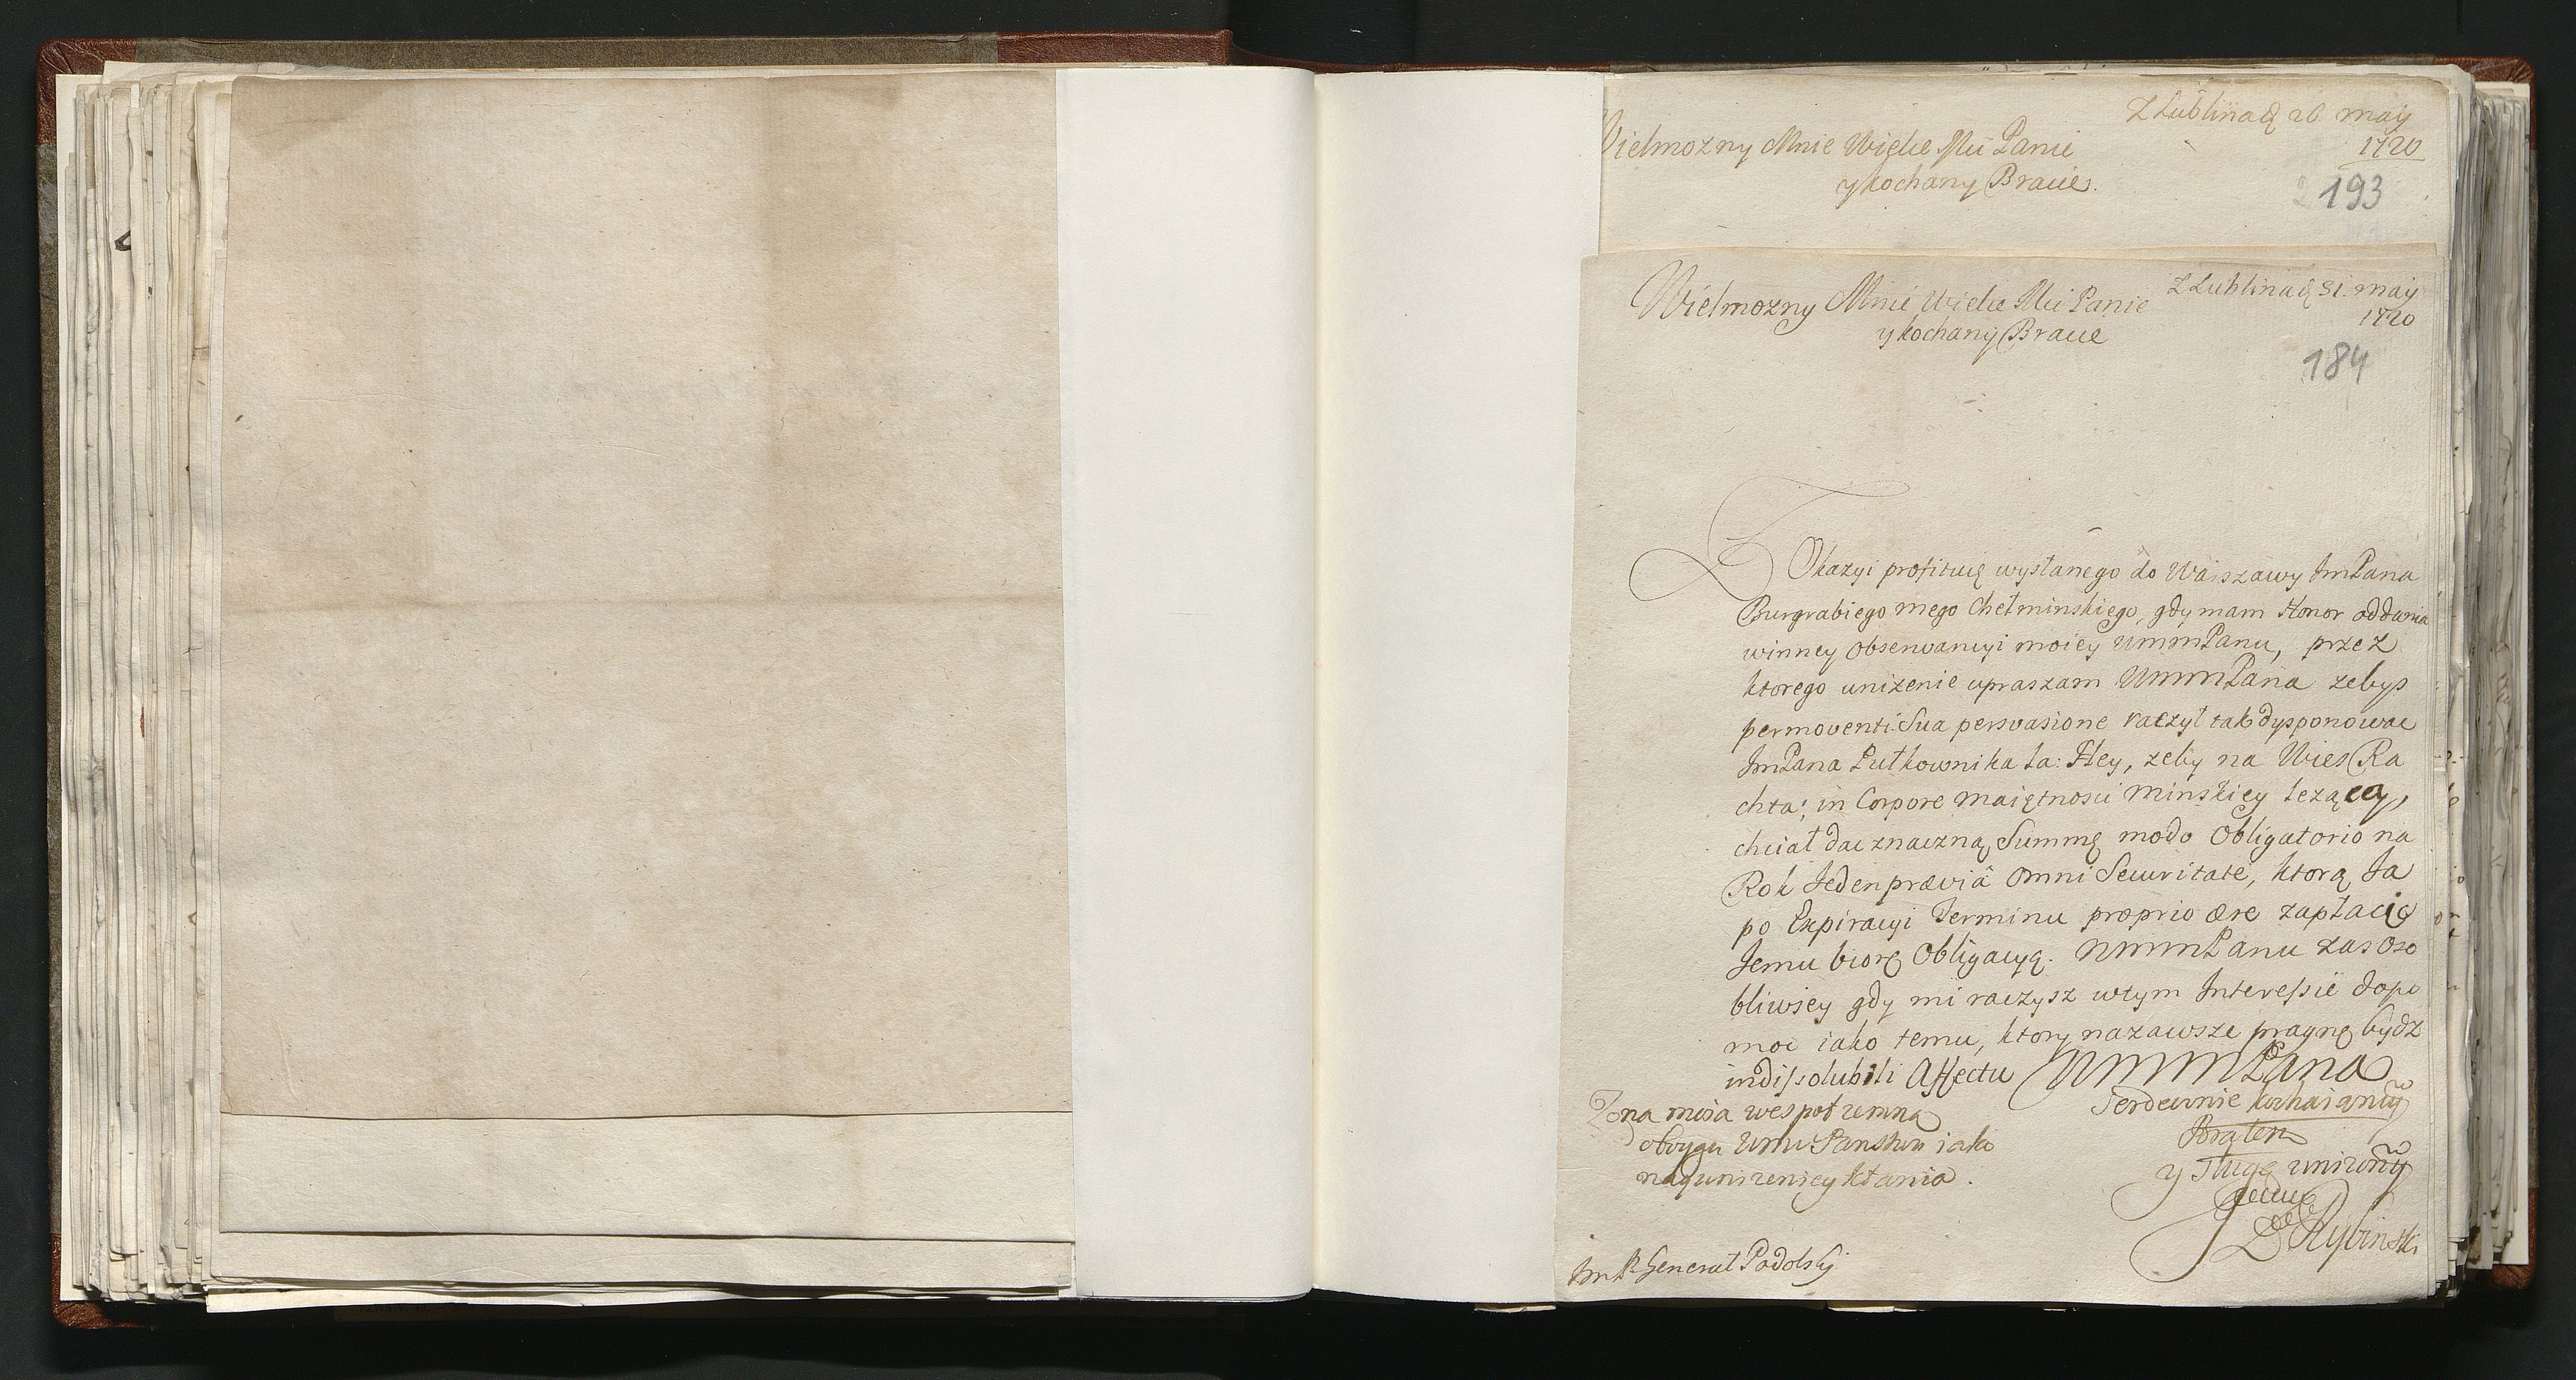 Z Lublina d 26 maij
1720
Wielmozny Mnie Wielce Mci Panie
y kochany Bracie.
193
Z Lublina d 31. maij
1720
Wielmozny Mnie Wielce Mci Panie
y kochany Bracie
184
Z Okazyi profituię wysłanego do Warszawy JmPana
Burgrabiego mego Chełminskiego, gdy mam Honor oddania
winney obserwancyi moiey WmmPanu, przez
ktorego unizenie upraszam WmmPana zebys
permoventi Sua persvasione raczył tak dysponowac
JmPana Pułkownika La: Hey, zeby na Wies Ra
chta; in Corpore maiętnosci Minskiey lezącą,
chciał dac znaczną Summę modo Obligatorio na
Rok Jeden prævia omni Securitate, ktorą Ja
po Expiracyi Terminu proprio ære zapłacic
Jemu biorę Obligacyą. WmmPanu zas oso
bliwiey gdy mi raczysz wtym Interessie dopo
moc iako temu, ktory nazawsze pragnę bydz
indissolubili Affectu WmmPana
Serdecznie kochaiącym
Bratem
y sługą unizonym
Zona moia wespoł zemną
oboygu Wmci Panstwu iako
nayunizeniey kłania.
Rybinski
JmP. Generał Podolski